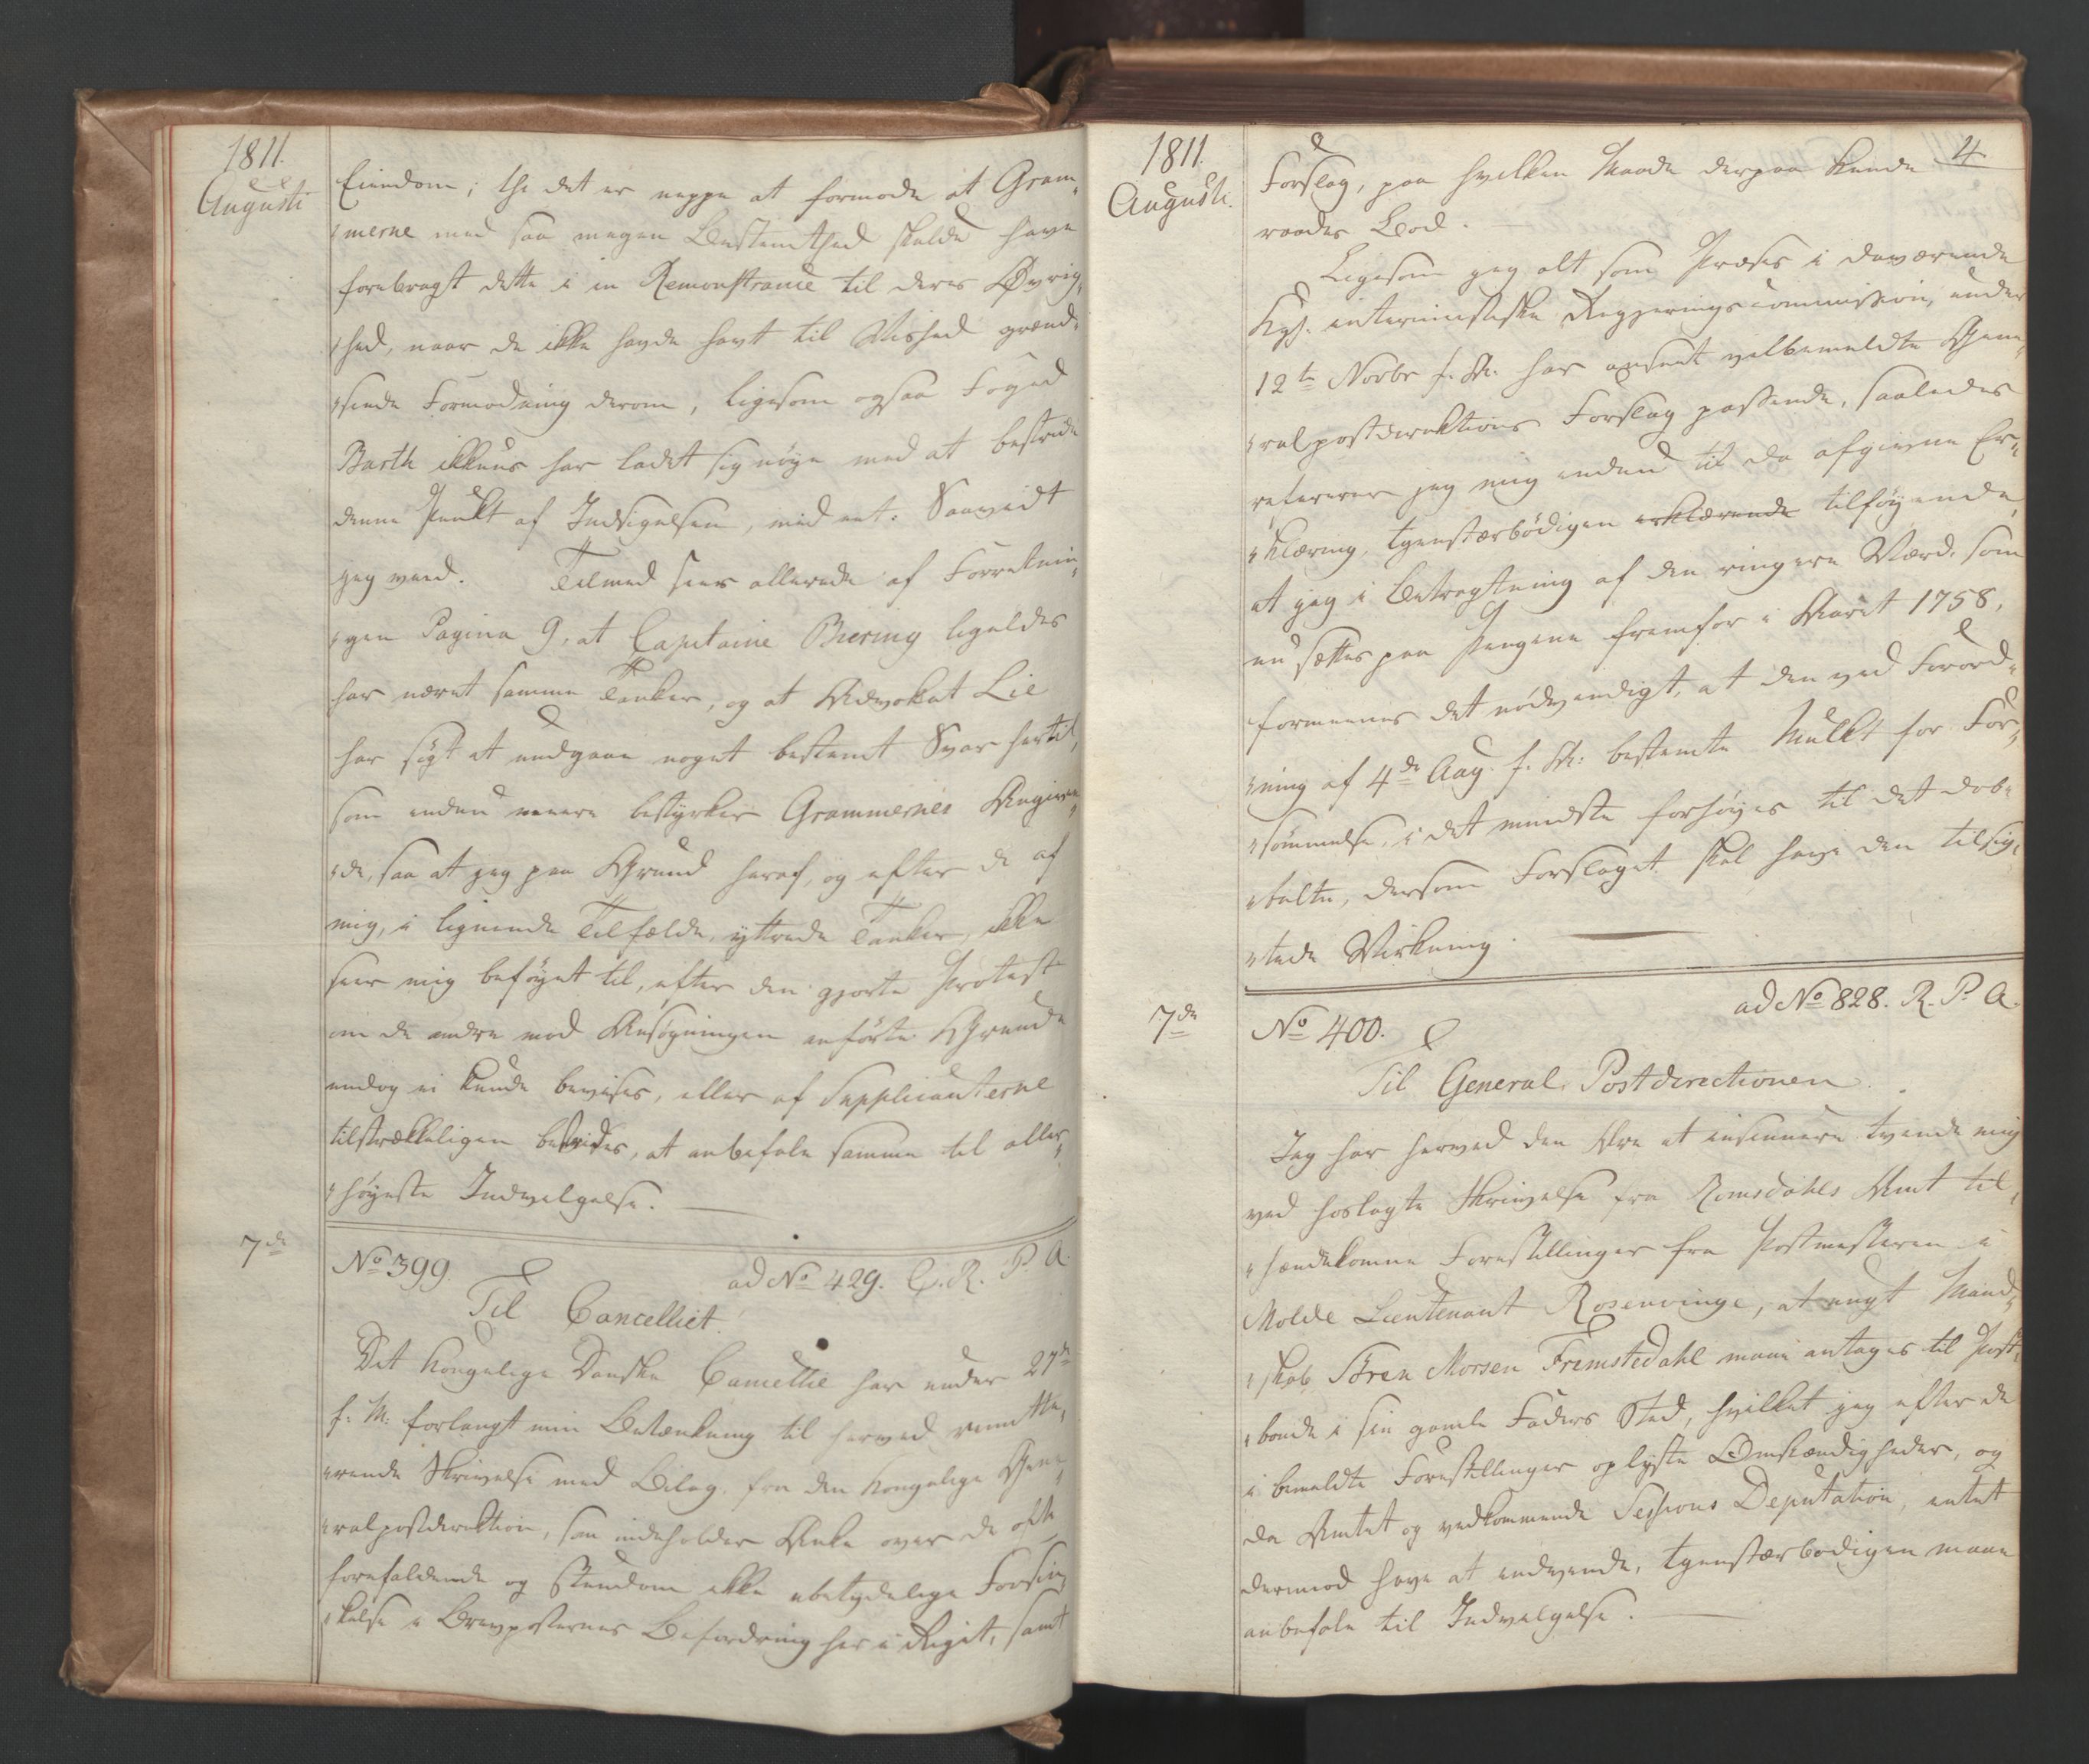 1811.
Augusti
Eiendom; thi det er neppe at formode at Gram„
„merne med saa megen Bestemthed skulde have
forebragt dette i en Remonstrance til deres Øvrig„
„hed, naar de ikke havde havt til Vished grænd„
„sende Formodning derom, ligesom ogsaa Foged
Barth ikkuns har ladet sig nöye med at bestride
denne Punkt af Indsigelsen, med et: Saavidt
jeg veed. Tilmed sees allerede af Forretnin„
„gen Pagina 9, at Capitaine Biering ligeledes
har næret samme Tanker, og at Advokat Lie
har sögt at undgaae noget bestemt Svar hertil,
som endnu meere bestyrker Grammernes Angiven„
„de, saa at jeg paa Grund heraf, og efter de af
mig, i lignende Tilfælde, yttrede Tanker, ikke
seer mig beföyet til, efter den gjorte Protest
om de andre mod Ansögningen anförte Grunde
endog ei kunde bevises, eller af Supplicanterne
tilstrækkeligen bestrides, at anbefale samme til aller„
„höyeste Indvilgelse.
7de
No 399.
ad No 429. C. R. P. A.
Til Cancelliet.
Det Kongelige Danske Cancellie har under 27de
f. M. forlangt min Betænkning til herved remitte„
„rende Skrivelse med Bilag, fra den Kongelige Gene„
„ralpostdirektion, som indeholder Anke over de ofte
forefaldende og stundom ikke ubetydelige Forsin„
„kelse i Brevposternes Befordring her i Riget, samt
1811.
Augusti.
4
Forslag, paa hvilken Maade derpaa kunde
raades Bod.
Ligesom jeg alt som Præses i daværende
Kgl. interimistiske Regjeringscommission, under
12te Novbr f. A. har anseet velbemeldte Gene„
„ralpostdirektions Forslag passende, saaledes
refererer jeg mig endnu til da afgivne Er„
„klæring, tjenstærbödigen erklærende tilföyende,
at jeg i Betragtning af den ringere Værd, som
nu sættes paa Pengene fremfor i Aaret 1758,
formeener det nödvendigt, at den ved Forord„
„ning af 4de Aug. f. A. bestemte Mulkt for For„
„sömmelse, i det mindste forhöyes til det dob„
„belte, dersom Forslaget skal have den tilsig„
„tede Virkning.
7de
No 400.
ad No 828. R. P. A.
Til General Postdirectionen.
Jeg har herved den Ære at insinuere tvende mig
ved hoslagte Skrivelse fra Romsdahls Amt til„
„hændekomne Forestillinger fra Postmesteren i
Molde Lieutenant Rosenvinge, at ungt Mand„
„skab Sören Morsen Fremstedahl maae antages til Post„
„bonde i sin gamle Faders Sted, hvilket jeg efter de
i bemeldte Forestillinger oplyste Omstændigheder, og
da Amtet og vedkommende Sessions Deputation, intet
derimod have at indvende, tjenstærbödigen maae
anbefale til Indvilgelse.